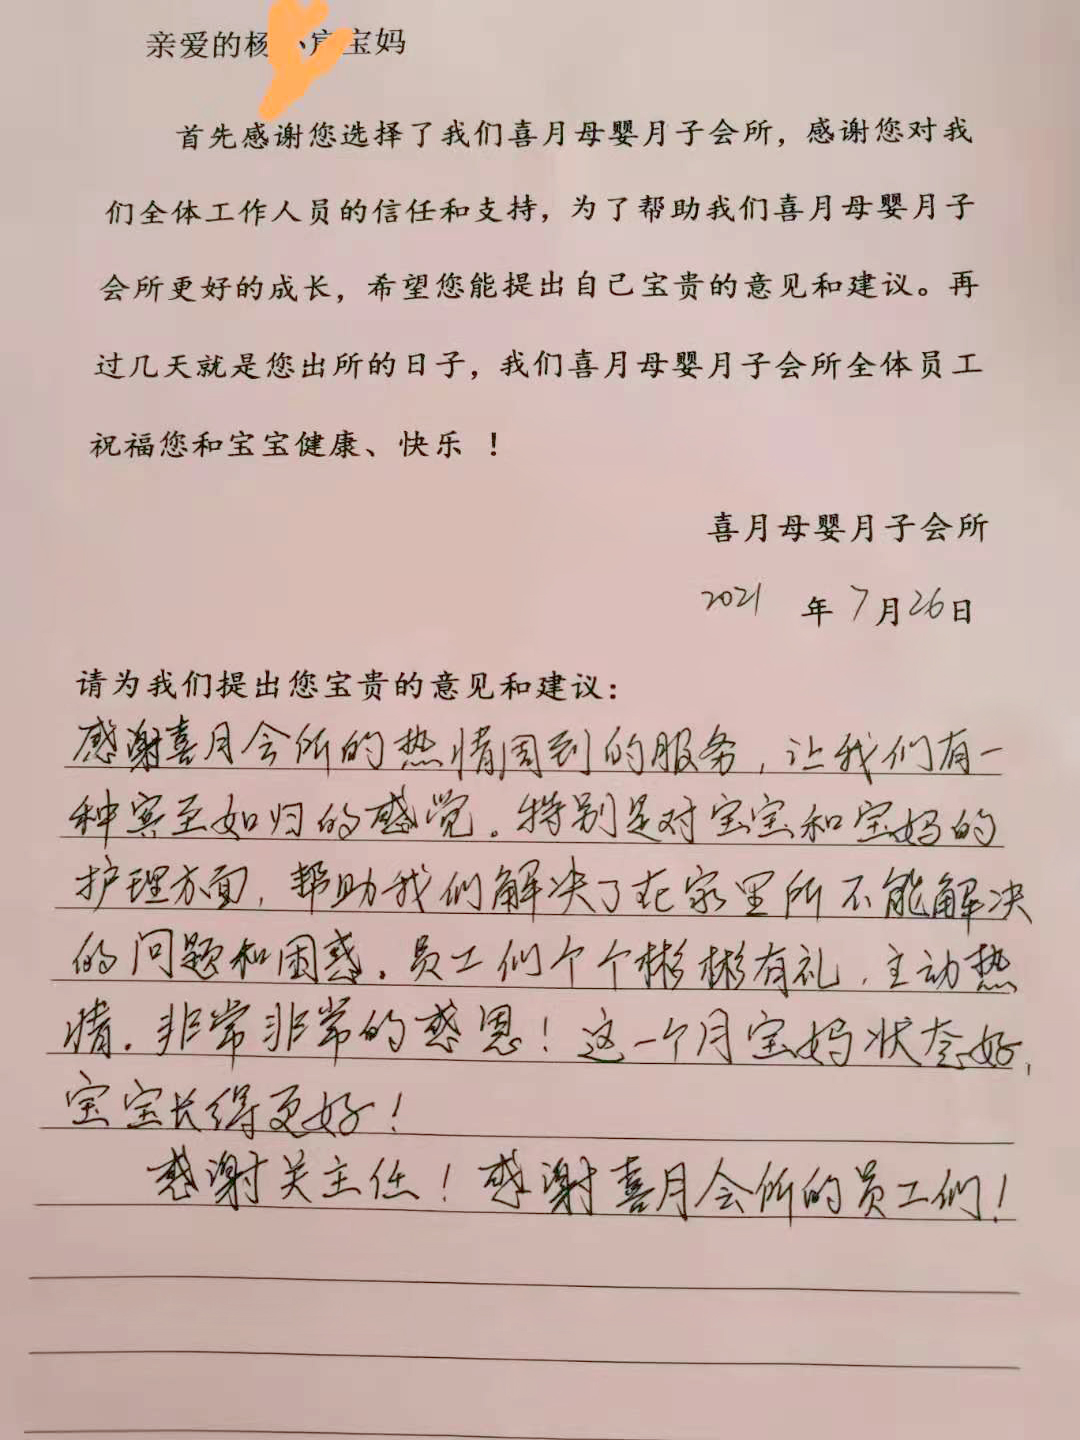 亲爱的杨宝妈
首先感谢您选择了我们喜月母婴月子会所，感谢您对我
们全体工作人员的信任和支持，为了帮助我们喜月母婴月子
会所更好的成长，希望您能提出自己宝贵的意见和建议。再
过几天就是您出所的日子，我们喜月母婴月子会所全体员工
祝福您和宝宝健康、快乐 ！
喜月母婴月子会所
2021 年 7月26日
请为我们提出您宝贵的意见和建议：
感谢喜月会所的热情周到的服务，让我们有一
种宾至如归的感觉。特别是对宝宝和宝妈的
护理方面，帮助我们解决了在家里所不能解决
的问题和困惑。员工们个个彬彬有礼，主动热
情。非常非常的感恩！这一个月宝妈状态好，
宝宝长得更好！
感谢关主任！感谢喜月会所的员工们！